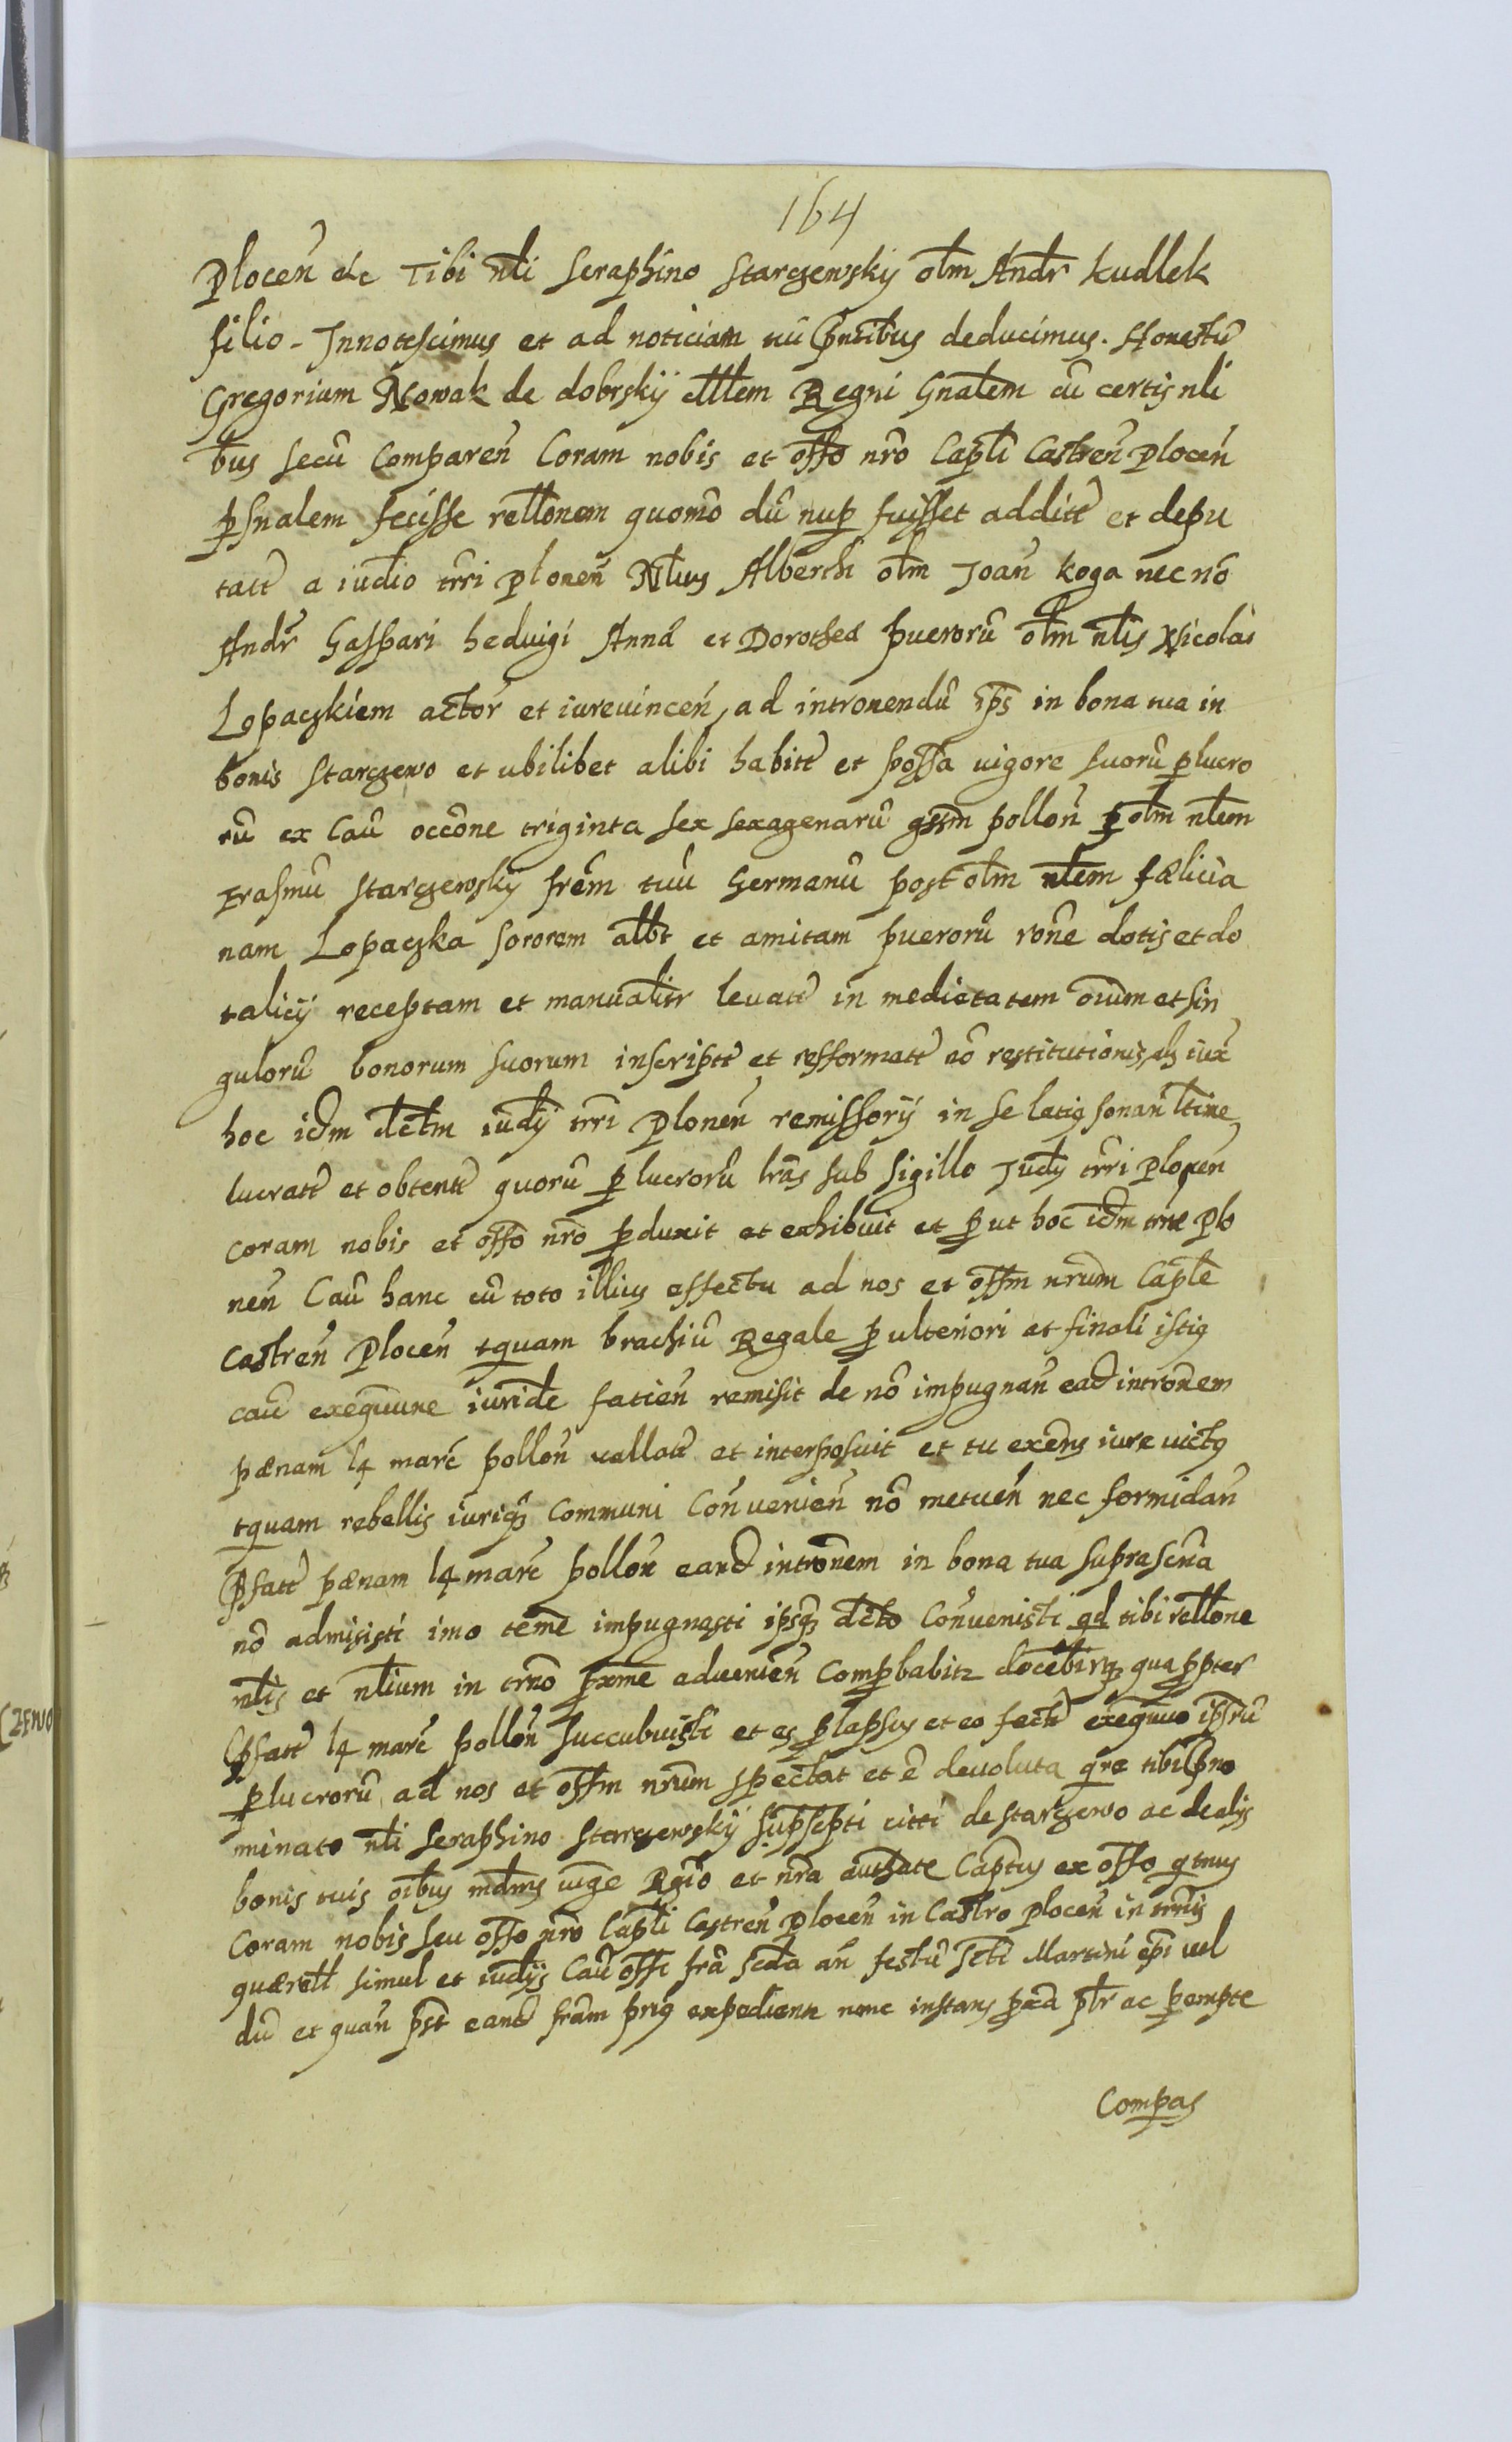 164
Plocen̄ etc Tibi nl̄i Seraphino Starczewsky ol̄m Andr̄ Kudlek
filio - Innotescimus et ad noticiam tuī pn̄tibus deducimus. Honestū
Gregorium Nowak de dobrsky Regni Gn̄alem cū certis nl̄i
bus secū Comparen̄ Coram nobis et offo nr̄o Capl̄i Castren̄ Plocen̄
psnalem fecisse rell̄onem quomō dū nup fuisset additt̄ et depu
tatt̄ a iudio tr̄ri plonen̄ Nl̄ius Alberth ol̄m Joan̄ Koga nec nō
Andr̄ Gaspari hedvigi Anna et Dorothea puerorū ol̄m nl̄is Nicolai
Lopaczkiem actor̄ et iurevincen̄, ad intronendū ip̄s in bona tua in
bonis Starczewo et ubilibet alibi habitt̄ et possa vigore suorū plucro
rū ex Caū occōne triginta sex sexagenarū gssm pollon̄ p ol̄m nl̄em
Erasmū Starczewsky fr̄em tuū Germanū post ol̄m nl̄em fælicia
nam Lopaczka sororem albt̄ et amitam puerorū rōne dotis et do
talicij receptam et manualitr levatt̄ in medietatem oium et sin
gulorū bonorum suorum inscriptt̄ et refformatt̄ eō restitutionis, als iux̄
hoc idm dct̄m iudij trri Plonen̄ remissorij in se latiq sonan̄ ltime
lucratt̄ et obtentt̄ quorū p lucrorū lr̄as sub sigillo Judij tr̄ri Plonen̄
coram nobis et offo nr̄o pduxit et exhibuit et put hoc idm Plo
nen̄ Caū hanc cū toto illius effectu ad nos et offm nr̄um Capl̄e
Castren̄ Plocen̄ tquam brachiū Regale p ulteriori et finali istiq
caū iuride facien̄ remisit de nō impugnan̄ ead intronem
pænam 14 marc̄ pollon̄ vallatt̄ et interposuit et tu exens iure victq
tquam rebellis iuriq Communi Conuenien̄ nō metuen̄ nec formidan̄
pfatt̄ pænam 14 marc̄ pollon̄ eand intronem in bona tua suprascr̄a
nō admisisti imo teme impugnasti ipsq dcto Conuenisti qd tibi rell̄one
nl̄is et nl̄ium in trn̄o pxme aduenien̄ Compbabitr docebiturq qua ppter
pfatt̄ 14 marc̄ pollon̄ succubuisti et es plapsus et eo fectt̄ ip̄sorū
plucrorū ad nos et offm nr̄um spectat et ē devoluta qre tibi pno
minato nl̄i Seraphino Starczewsky citti de Starczewo ac de alijs
bonis tuis oībus mdms Rgio et nr̄a authate Captus ex offo
Coram nobis seu offo nr̄o Capl̄i Castren̄ Plocen̄ in Castro Plocen̄ in trn̄is
quærell simul et iudijs Caū offi frā scda an̄ festū Scti Martini epi uel
dū et quan̄ pst eand fram priq expedientr nunc instans pxa ptr ac pempte
Compas